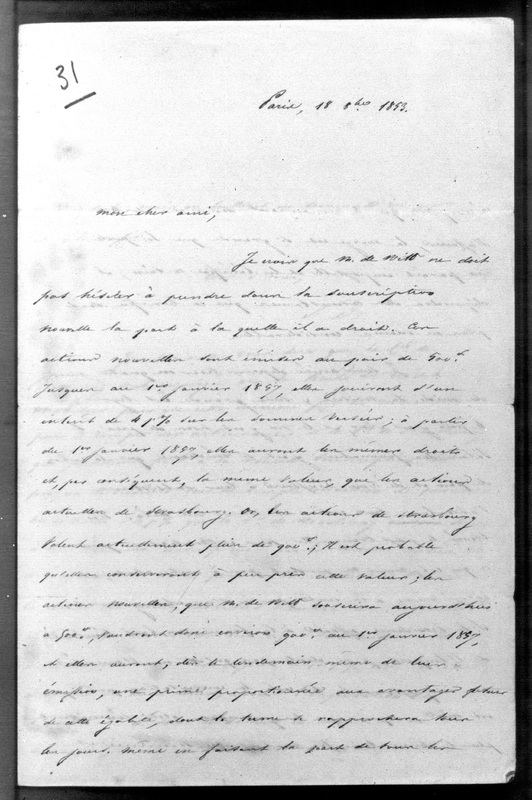 31
Paris, 18 8bre 1853.
mon cher ami,
Je crois que M. de Witt ne doit
pas hésiter à prendre dans la souscription
nouvelle la part à la quelle il a droit. Ces
actions nouvelles sont émises au pair de 500f.
Jusques au 1er janvier 1857, elles jouiront d'un
intérêt de 4 p% sur les sommes versées; à partir
du 1er janvier 1857, elles auront les mêmes droits
et, par conséquent, la même valeur, que les actions
actuelles de Strasbourg. Or, les actions de Strasbourg
valent actuellement plus de 900f.; Il est probable
qu'elles conserveront à peu près cette valeur; les
actions nouvelles, que M. de Witt souscrira aujourd'hui
à 500f, vaudront donc environ 900f. au 1er janvier 1857,
et elles auront, dès le lendemain même de leur
émission, une prime proportionnée aux avantages futurs
de cette égalité dont le terme se rapprochera tous
les jours. Même en faisant la part de tous les